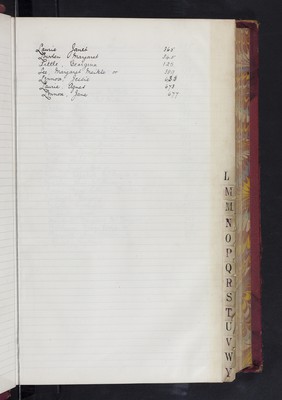 Lawrie Janet 145
Lowden Margaret 145
Little, Georgina 185
Lee Margaret Meikle or 380
Lennox, Jessie 438
Lawrie, Agnes 478
Lennox, Jane 677
L
M
M
N
O
P
Q
R
S
T
U
V
W
Y